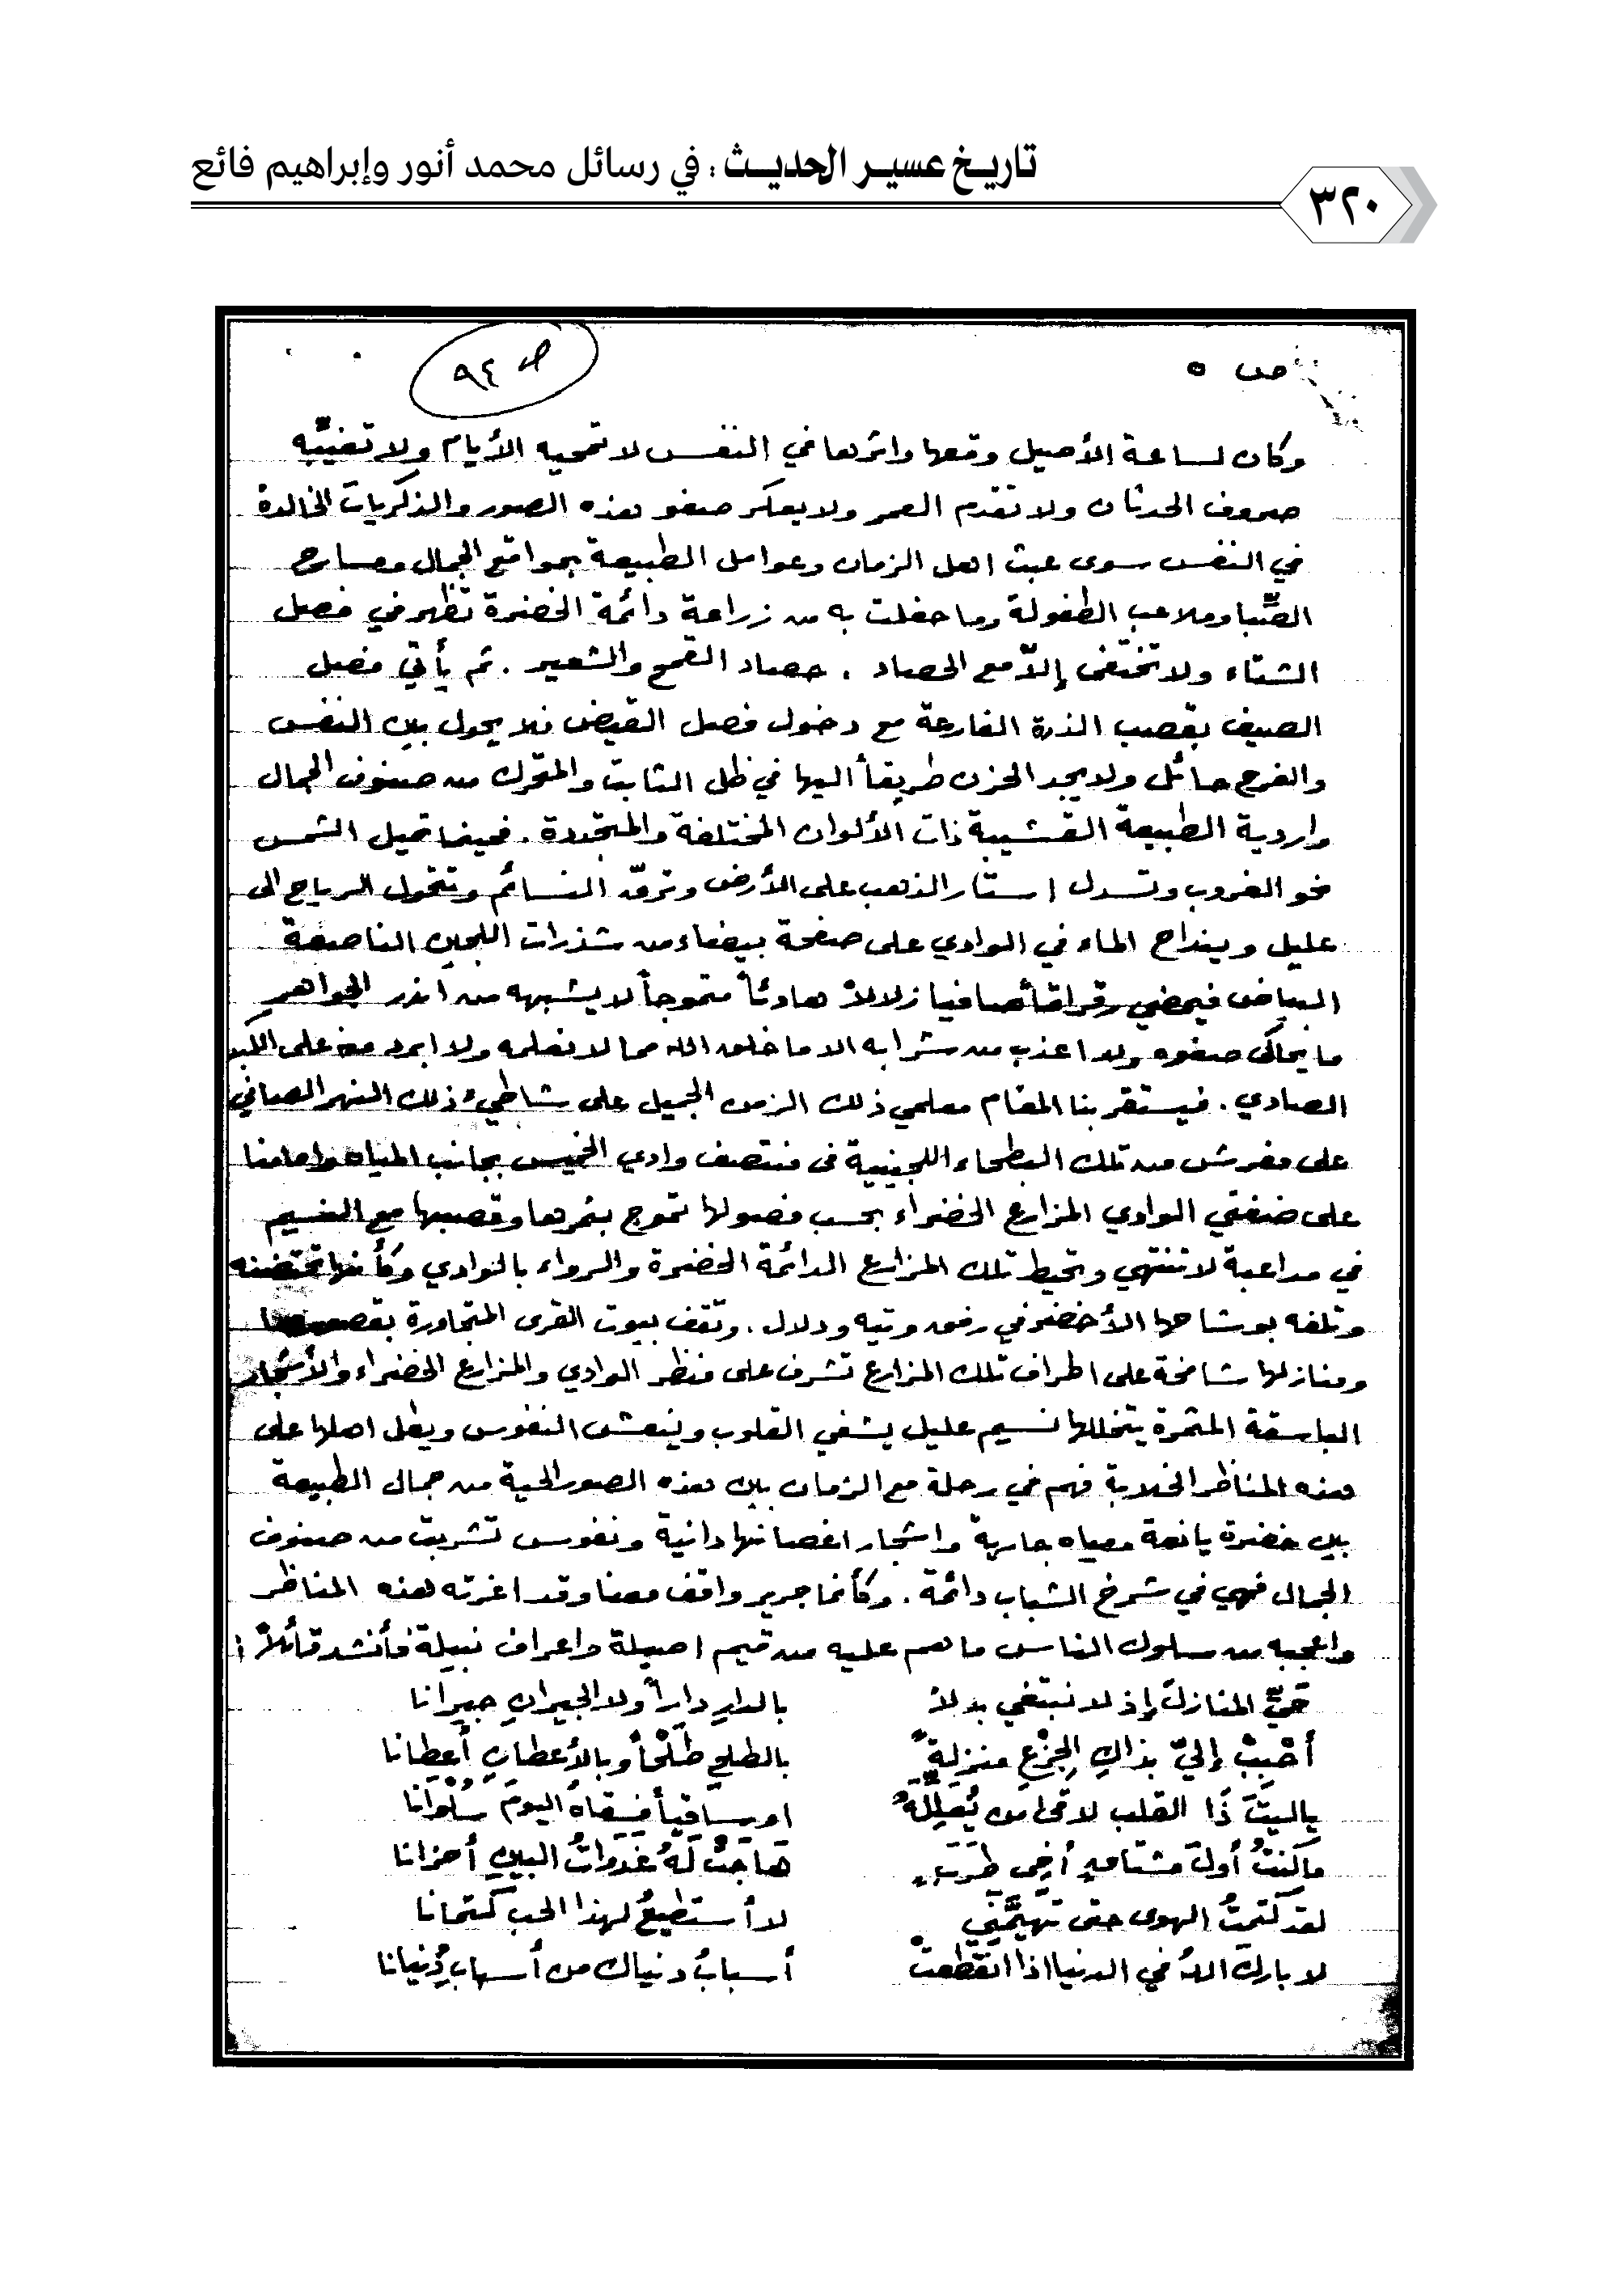 تاريخ عسير الحديث : في رسائل محمد أنور وإبراهيم فائع
٣٢٠
ص ٥
ص ٩٤
وكان لساعة الأصيل وقعها واثرها في النفس لا تمحيه الأيام ولا تغيّبه
صروف الحدثان ولا تقدم العمر ولا يعكر صفو هذه الصور والذكريات الخالدة
في النفس سوى عبث اهل الزمان وعوامل الطبيعة بمواقع الجمال ومسارح
الصِّبا وملاعب الطفولة وما حفلت به من زراعة دائمة الخضرة تظهر في فصل
الشتاء ولا تختفى إلاّ مع الحصاد . حصاد القمح والشعير . ثم يأتي فصل
الصيف بقصب الذرة الفارعة مع دخول فصل القيض فلا يحول بين النفس
والفرح حائل ولا يجد الحزن طريقاً اليها في ظل الثابت والمتحرك من صنوف الجمال
واردية الطبيعة القشيبة ذات الألوان المختلفة والمتجددة . فحينما تميل الشمس
نحو الغروب وتسدل استار الذهب على الأرض وترقّ النسائم وتتحول الرياح الى
عليل وينداح الماء في الوادي على صفحة بيضاء من شذرات اللجين الناصعة
البياض فيمضي رقراقاً صافيا زلالاً هادئاً متموجاً لا يشبهه من انذر الجواهر
ما يحاكى صفوه ولا اعذب من شرابه الا ما خلق الله مما لا نعلمه ولا ابرد منه على الكبد
الصادي . فيستقر بنا المقام معلمي ذلك الزمن الجميل على شاطيء ذلك النهر الصافي
على مفرش من تلك البطحاء اللجينية فى منتصف وادي الخميس بجانب المياه وامامنا
على ضفتي الوادي المزارع الخضراء بحسب فصولها تموج بثمرها وقصبها مع النسيم
في مداعبة لا تنتهي وتحيط تلك المزارع الدائمة الخضرة والرواء بالوادي وكأنها تحتضنه
وتلفه بوشاحها الأخضر في رفق وتيه ودلال . وتقف بيوت القرى المتجاورة
ومنازلها شامخة على اطراف تلك المزارع تشرف على منظر الوادي والمزارع الخضراء والأشجار
الباسقة المثمرة يتخللها نسيم عليل يشفي القلوب وينعش النفوس ويطل اهلها على
هذه المناظر الخلابة فهم في رحلة مع الزمان بين هذه الصور الحية من جمال الطبيعة
بين خضرة يانعة ومياه جارية واشجار اغصانها دانية ونفوس تشربت من صنوف
الجمال فهي في شرخ الشباب دائمة . وكأنما جرير واقف معنا وقد اغرته هذه المناظر
واعجبه من سلوك الناس ما هم عليه من قيم اصيلة واعراف نبيلة فأنشد قائلاً :
حَيِّ المنازلَ إذ لا نبتغي بدلاً بالدارِ داراً ولا الجيرانِ جيرانا
أحْبِبْ إليّ بذاكِ الجِزْعِ منزلةً بالطلحِ طَلْحاً وبالأعطانِ أعطانا
ياليتَ ذَا القلب لاقى من يُعلِّلَهُ او ساقياً فسقاهُ اليومَ سُلْوَانا
ما كنتُ أولَ مشتاقٍ أخي طَرَبٍ هَاجَتْ لَهُ غَدَوَاتُ البينِ أحزانا
لقد كتمتُ الهوى حتى تَهيَّمَنِي لا أستطيعُ لهذا الحب كتمانا
لا باركَ اللهُ في الدنيا اذا انقطعتْ أسبابُ دنياك من أسبابِ دُنيانا